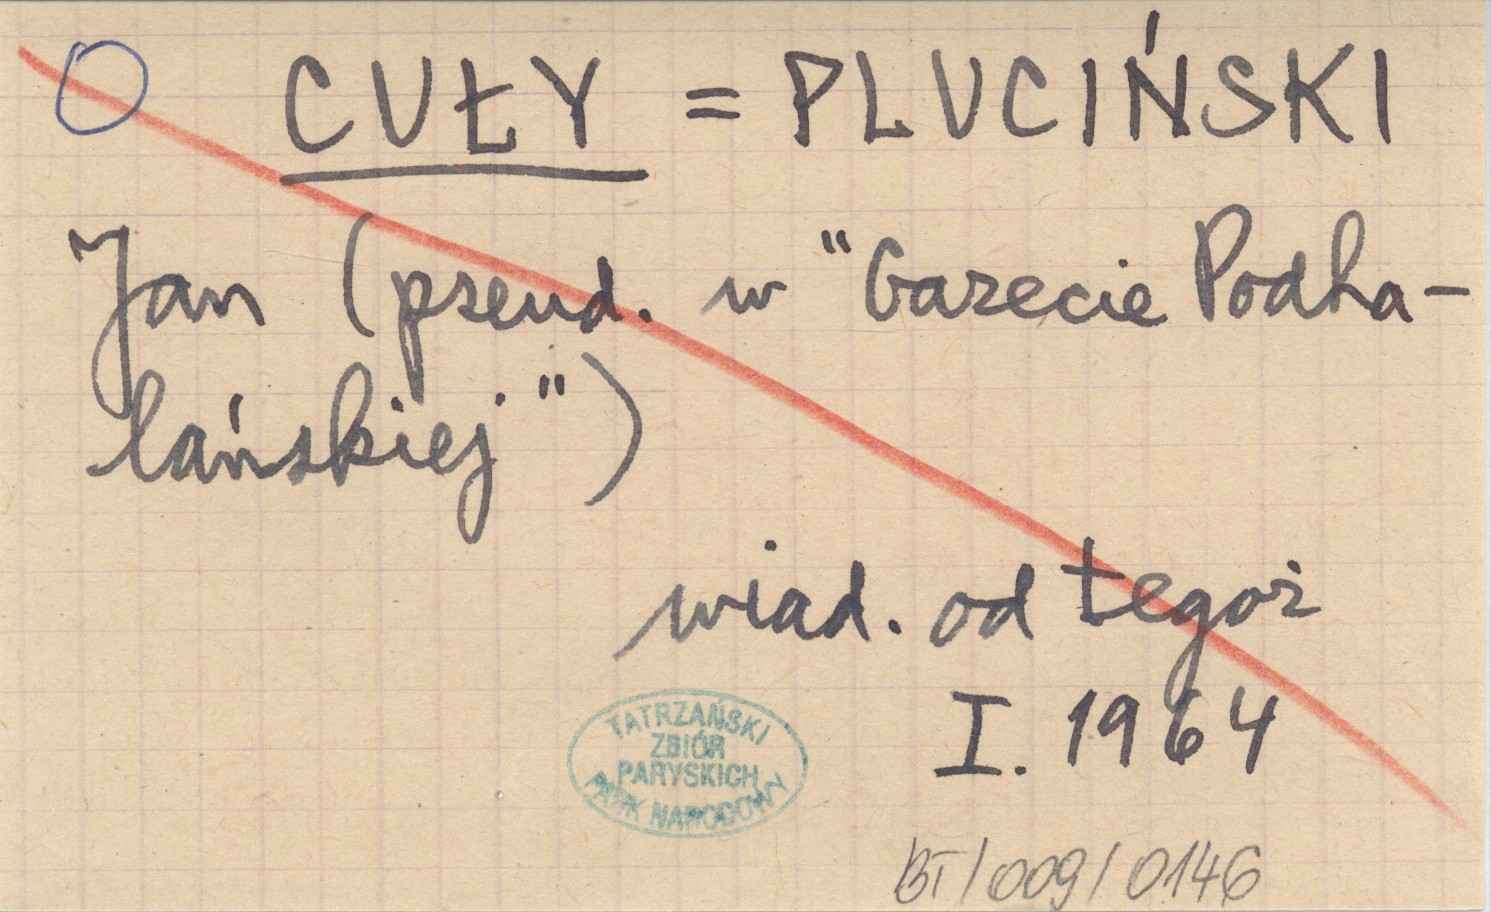 CUŁY = PLUCIŃSKI
Jan (pseud. w "Gazecie Podha-
lańskiej")
wiad. od tegoż
I. 1964
TATRZAŃSKI
ZBIÓR
PARYSKICH
PARK NARODOWY
BT/009/0146